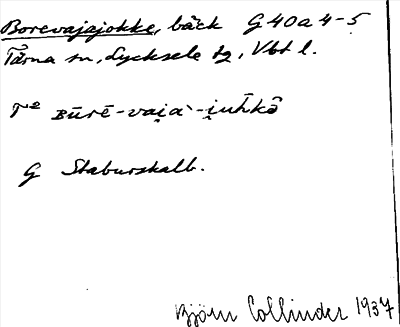 Borevajajokke, bäck G 40 a 4-5
Tärna sn, Lycksele tg, Vbt l.
būrē-vai̯a`-i̯uh̄kȧ̂
G Staburskalb.
Björn Collinder 1937